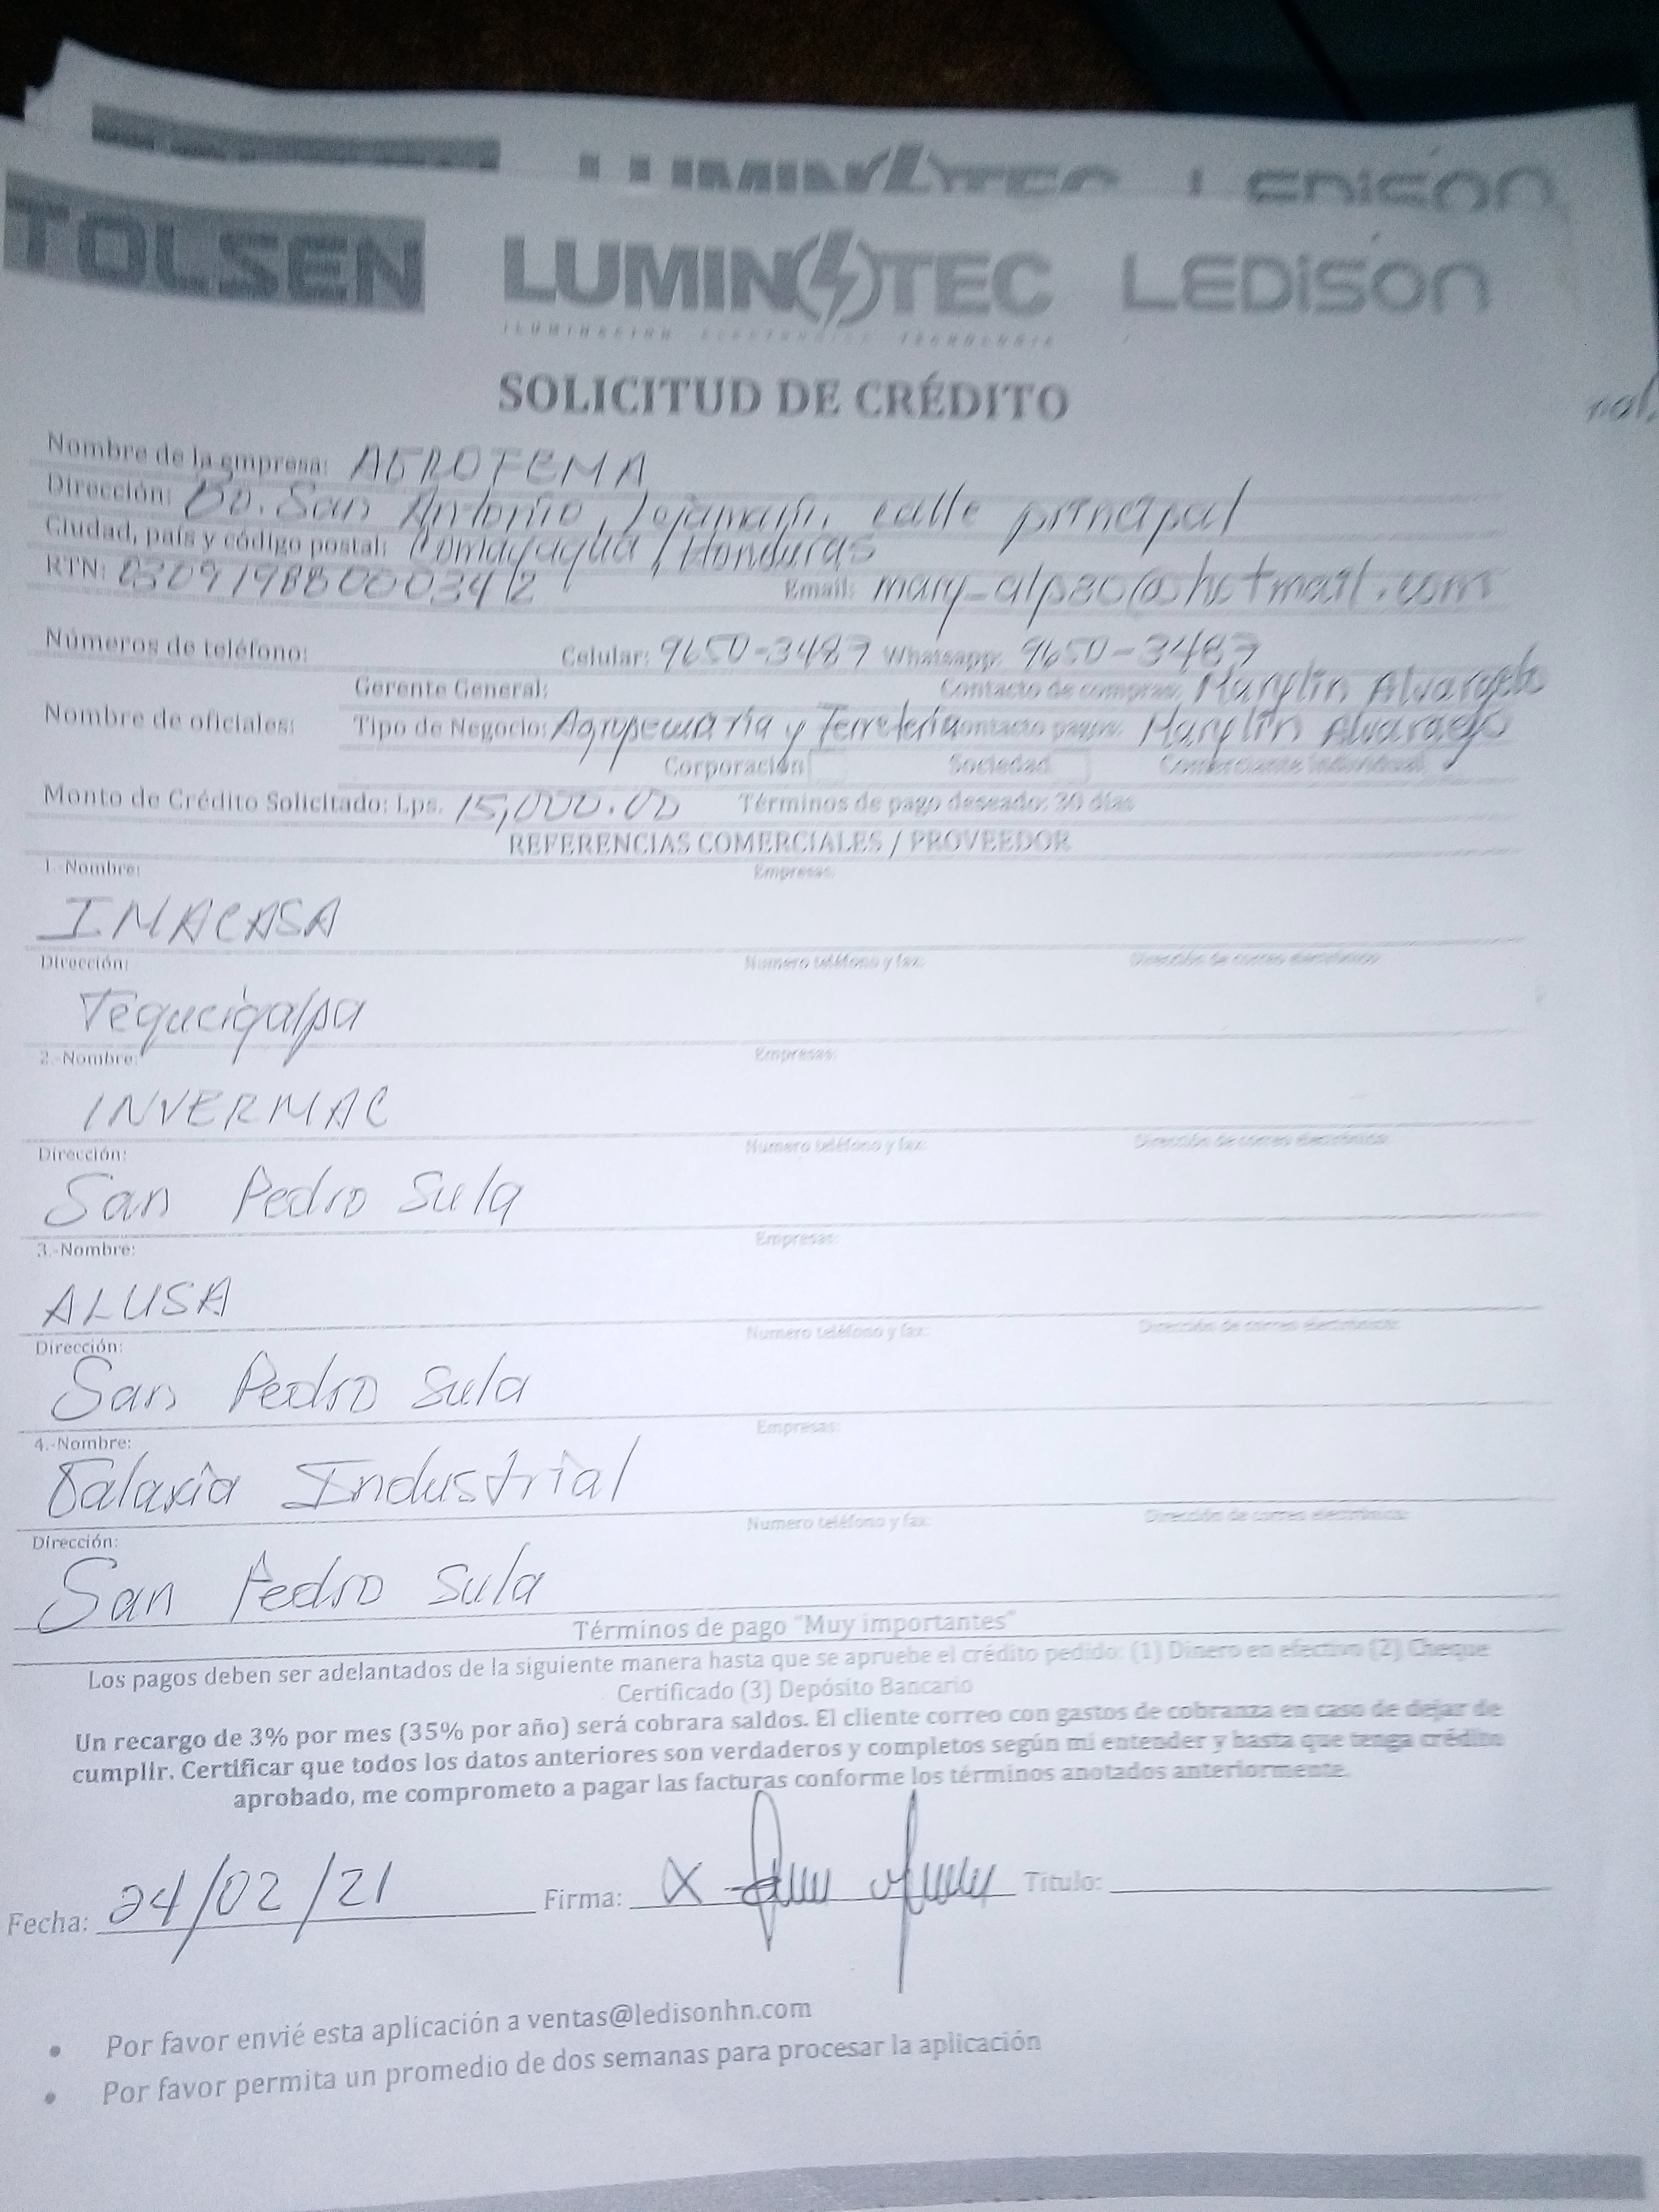 LUMINOTEC LEDISON
TOLSEN LUMINOTEC LEDISON
ILUMINACION ELECTRONICA TECNOLOGIA
SOLICITUD DE CRÉDITO
Nombre de la empresa: AGROFEMA
Dirección: Bo. San Antonio, calle principal
Ciudad, país y código postal: Comayagua, Honduras
RTN: Email: mary_alp80@hotmail.com
Números de teléfono: Celular: 9650-3487 Whatsapp: 9650-3487
Gerente General: Contacto de compras: Marylin Alvarado
Nombre de oficiales: Tipo de Negocio: Agropecuaria y Ferreteria Contacto pagos: Marylin Alvarado
Corporación Sociedad Comerciante Individual
Monto de Crédito Solicitado: Lps. 15,000.00 Términos de pago deseado: 30 días
REFERENCIAS COMERCIALES / PROVEEDOR
1.-Nombre: Empresas:
IMACASA
Dirección: Numero teléfono y fax: Dirección de correo electrónico:
Tegucigalpa
2.-Nombre: Empresas:
INVERMAC
Dirección: Numero teléfono y fax: Dirección de correo electrónico:
San Pedro Sula
3.-Nombre: Empresas:
ALUSA
Dirección: Numero teléfono y fax: Dirección de correo electrónico:
San Pedro Sula
4.-Nombre: Empresas:
Galaxia Industrial
Dirección: Numero teléfono y fax: Dirección de correo electrónico:
San Pedro Sula
Términos de pago "Muy importantes"
Los pagos deben ser adelantados de la siguiente manera hasta que se apruebe el crédito pedido: (1) Dinero en efectivo (2) Cheque
Certificado (3) Depósito Bancario
Un recargo de 3% por mes (35% por año) será cobrara saldos. El cliente correo con gastos de cobranza en caso de dejar de
cumplir. Certificar que todos los datos anteriores son verdaderos y completos según mi entender y hasta que tenga crédito
aprobado, me comprometo a pagar las facturas conforme los términos anotados anteriormente.
Fecha: 24/02/21 Firma: X Titulo:
• Por favor envié esta aplicación a ventas@ledisonhn.com
• Por favor permita un promedio de dos semanas para procesar la aplicación